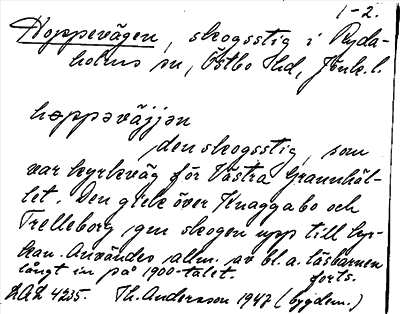 1-2.
Hoppevägen, skogsstig i Ryda-
holms sn, Östbo hd, Jönk. l.
høppəväjjən
den skogsstig, som
var kyrkväg för Västra Grannhäl-
let. Den gick över Knaggabo och
Trelleborg gm skogen upp till kyr-
kan. Användes allm. av bl.a. läsbarnen
långt in på 1900-talet. forts.
LAL 4235. Th. Andersson 1947 (bygdem.)